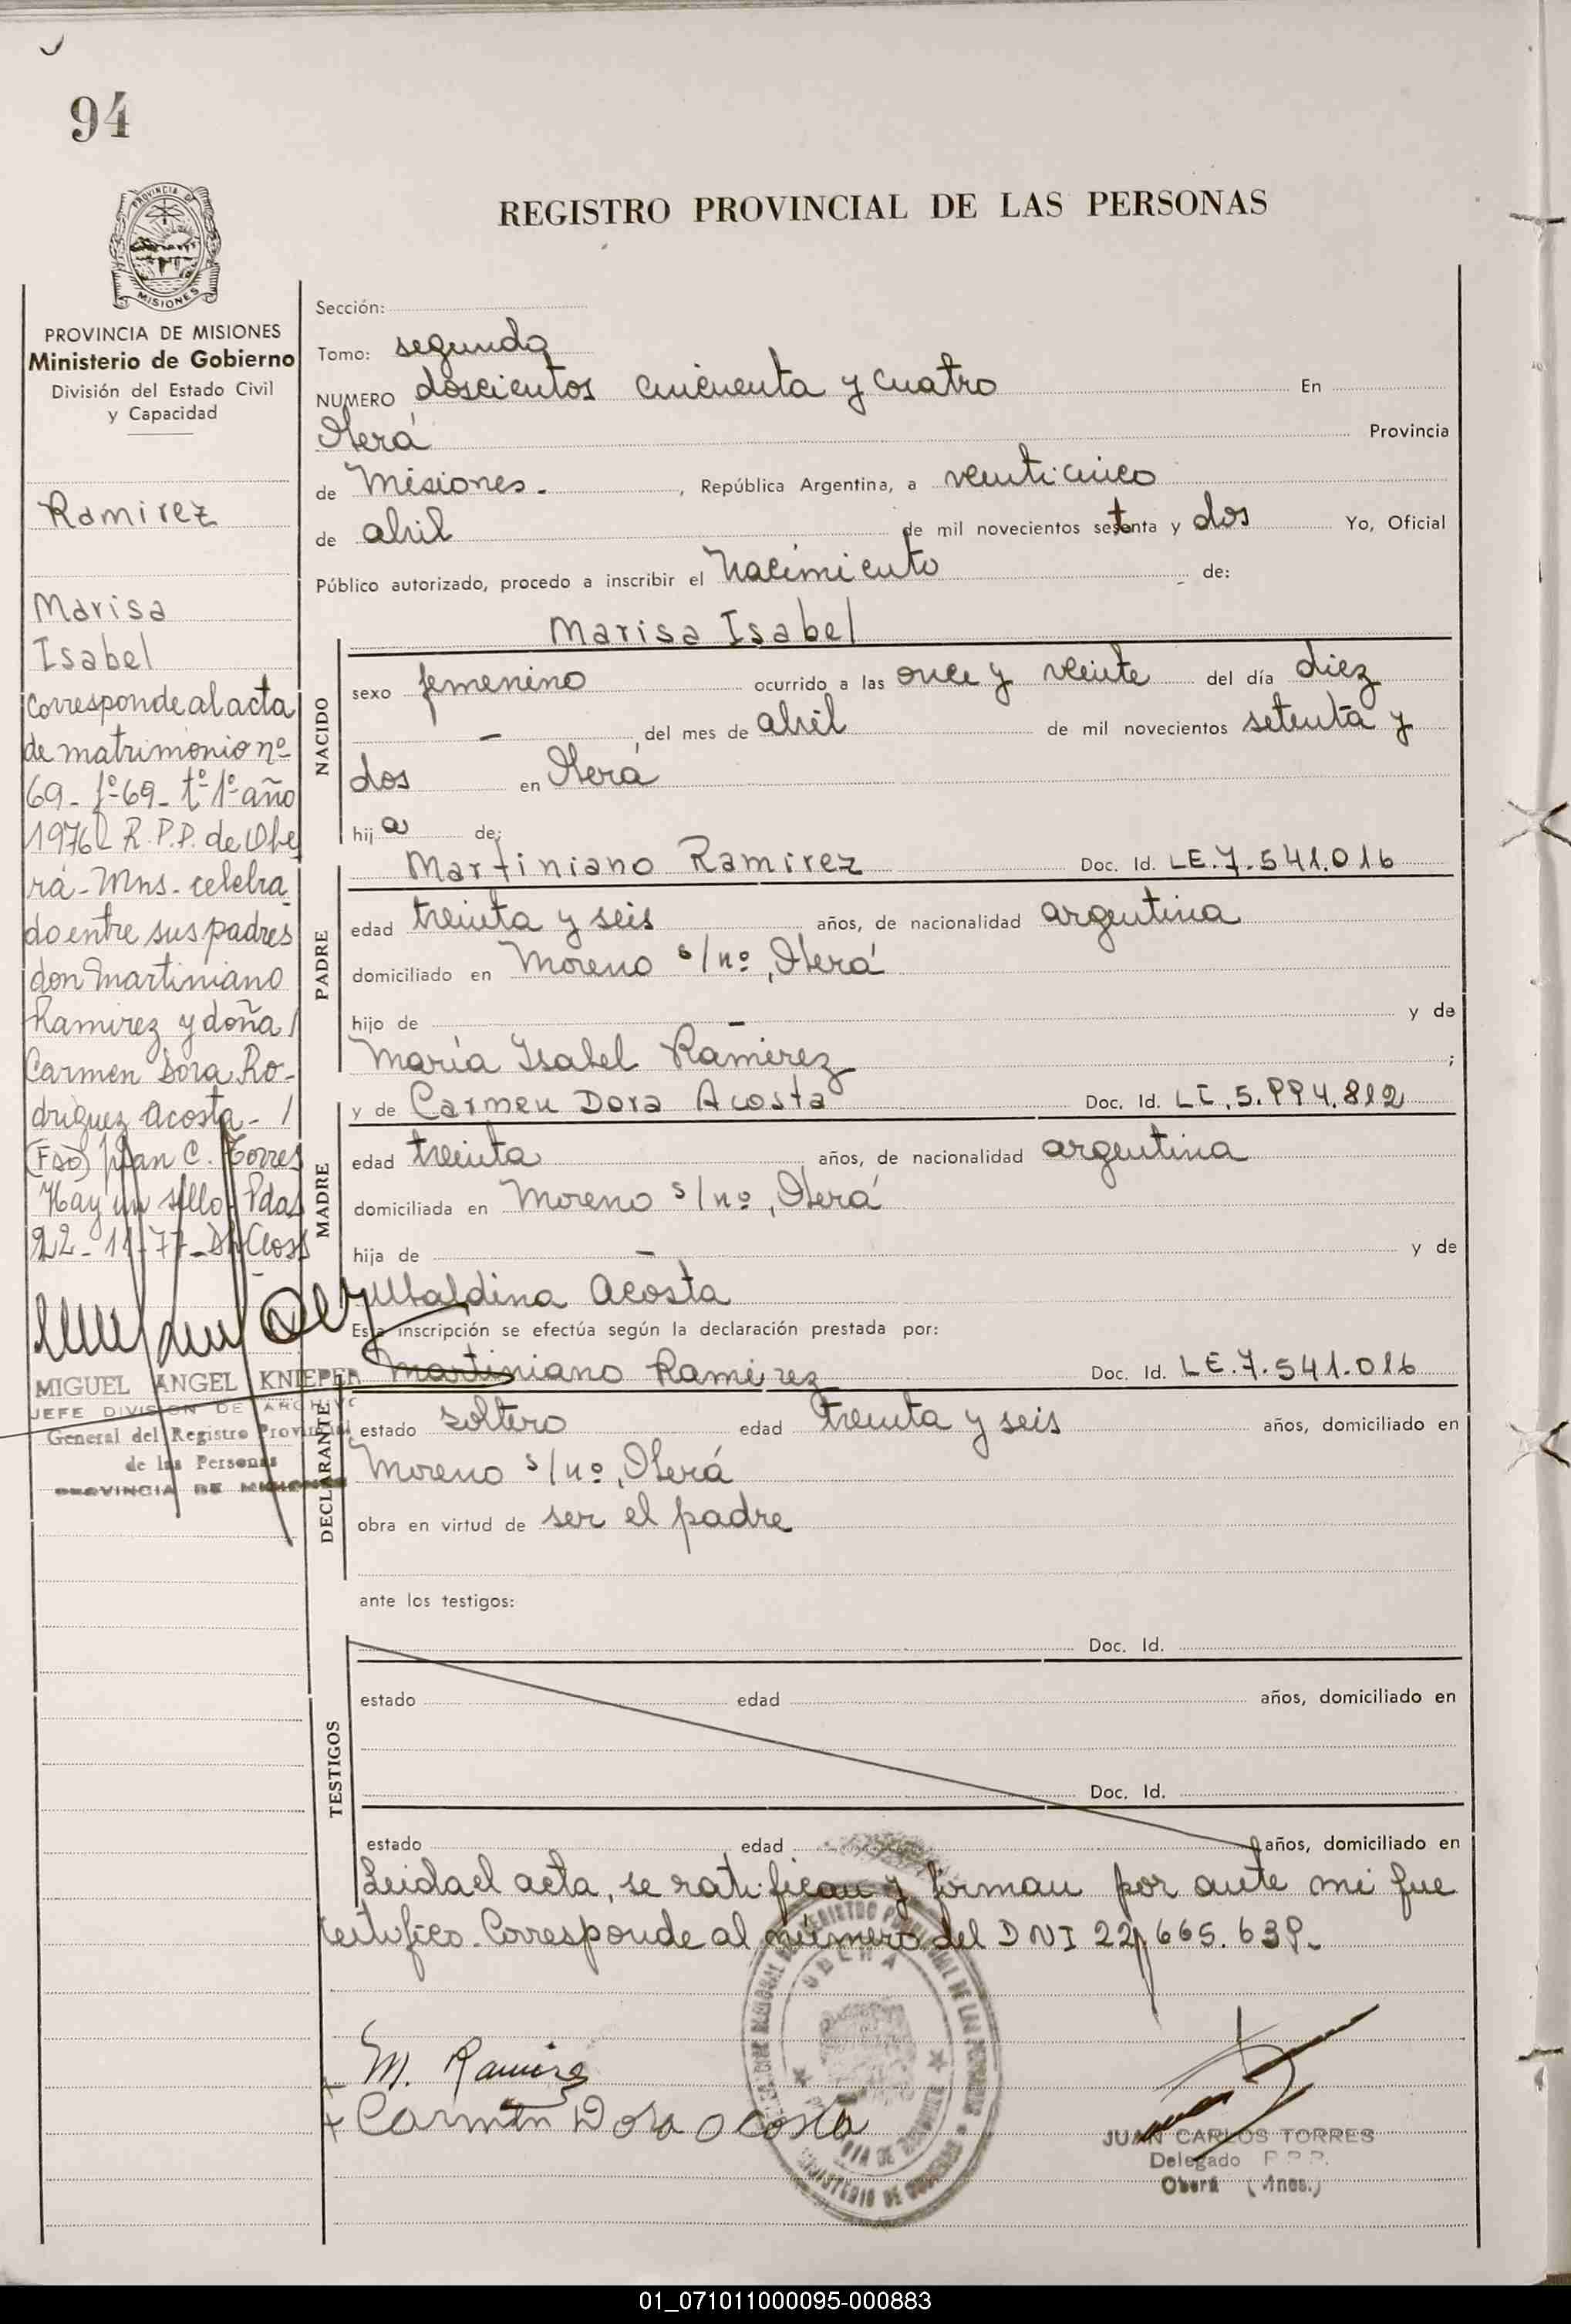 94
PROVINCIA DE
MISIONES
PROVINCIA DE MISIONES
Ministerio de Gobierno
División del Estado Civil
y Capacidad
Ramirez
Marisa
Isabel
Corresponde al acta
de matrimonio nº
69 - fº 69 - tº 1º año
1976 R.P.P. de Obe
rá - Mns - celebra
do entre sus padres
don Martiniano
Ramirez y doña /
Carmen Dora Ro-
driguez Acosta - /
(Fdo) Juan C. Torres
Hay un sello - Pdas
22-11-77 -
MIGUEL ANGEL KNIEPER
JEFE DIVISION DE ARCHIVO
General del Registro Provincial
de las Personas
PROVINCIA DE MISIONES
REGISTRO PROVINCIAL DE LAS PERSONAS
Sección:
Tomo: segundo
NUMERO doscientos cincuenta y cuatro En
Oberá Provincia
de Misiones - , República Argentina, a veinticinco
de abril de mil novecientos setenta y dos Yo, Oficial
Público autorizado, procedo a inscribir el Nacimiento de:
Marisa Isabel
NACIDO
sexo femenino ocurrido a las once y veinte del día diez
— del mes de abril de mil novecientos setenta y
dos en Oberá
hij a de:
Martiniano Ramirez Doc. Id. LE.7.541.016
PADRE
edad treinta y seis años, de nacionalidad argentina
domiciliado en Moreno s/nº, Oberá
hijo de — y de
María Isabel Ramirez ;
y de Carmen Dora Acosta Doc. Id. LC.5.994.812
MADRE
edad treinta años, de nacionalidad argentina
domiciliada en Moreno s/nº, Oberá
hija de — y de
Ubaldina Acosta
Esta inscripción se efectúa según la declaración prestada por:
Martiniano Ramirez Doc. Id. LE.7.541.016
DECLARANTE
estado soltero edad treinta y seis años, domiciliado en
Moreno s/nº, Oberá
obra en virtud de ser el padre
ante los testigos:
TESTIGOS
Doc. Id.
estado edad años, domiciliado en
Doc. Id.
estado edad años, domiciliado en
Leida el acta, se ratifican y firman por ante mi que
certifico. Corresponde al número del DNI 22.665.639.
M. Ramirez
Carmen Dora Acosta
OBERA
JUAN CARLOS TORRES
Delegado R.P.P.
Oberá (Mnes.)
01_071011000095-000883